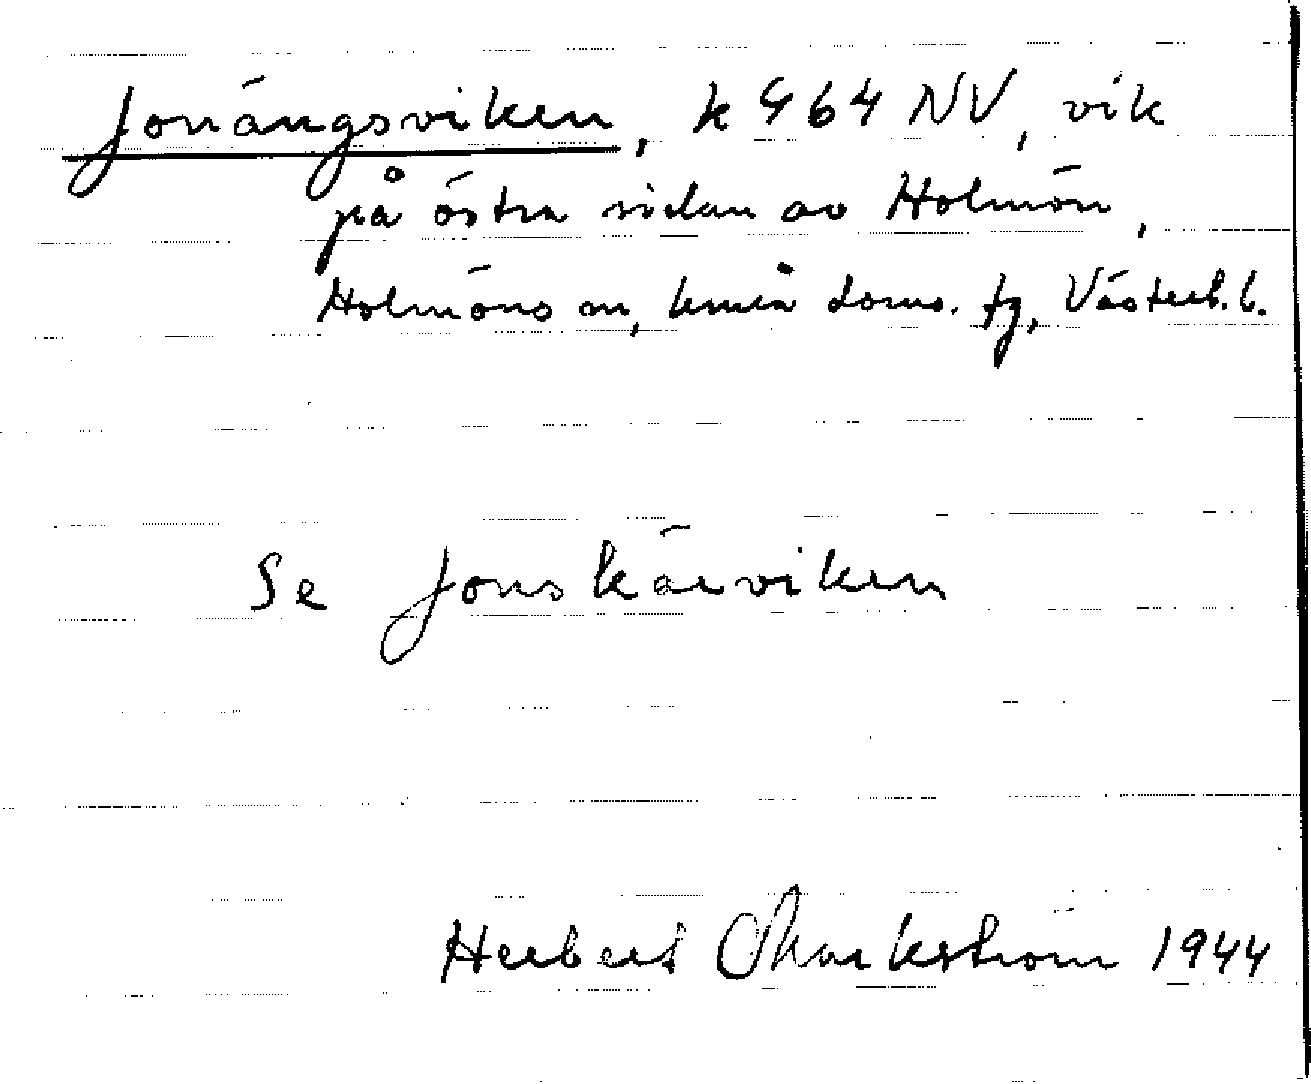 Jonängsviken, k 464 NV, vik
på östra sidan av Holmön,
Holmöns sn, Umeå doms. tg, Västerb. l.
Se Jonskärviken
Herbert Markström 1944